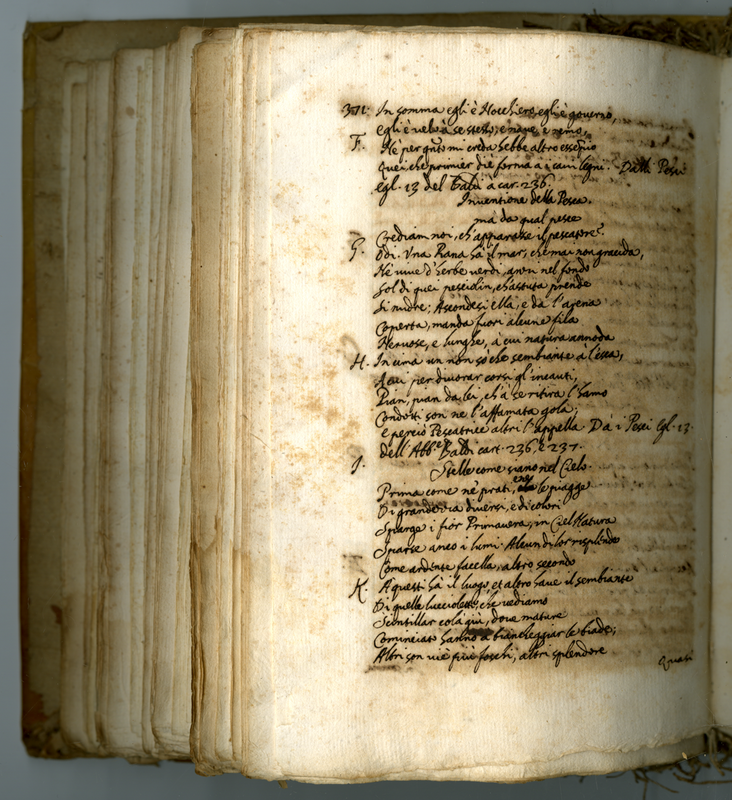 M. In somma egli è Nocchiero, egli è governo,
egli è vela à se stesso, e nave, e remo,
F. Nè per qñto mi creda hebbe altro essempio
Quei che primier diè forma a i cavi legni. Dalli Pesci
egl. 13 del Baldi a car. 236.
Inventione della Pesca.
mà da qual pesce
Crediam noi, ch'apparasse il pescatore?
G. Odi. Una Rana hà il mar, che mai non gracida,
Nè vive d'herbe verdi, anzi nel fondo
Sol di quei pesciolin, ch'astuta prende
Si nudre; Ascondesi ella, e da l'arena
Coperta, manda fuori alcune fila
Nervose, e lunghe, à cui natura annoda
H. In cima un non sò che sembiante à l'esca,
A cui per divorar corsi gl'incauti,
Pian, pian da lei, ch'à se ritira l'hamo
Condotti son ne l'affamata gola;
E perciò Pescatrice altri l'appella. Da i Pesci Egl. 13.
dell'Abbe. Baldi cart. 236, e 237.
I. Stelle come siano nel Cielo.
Prima come ne' prati, e ne le piagge
Di grandezza diversi, e di colori
Sparge i fior Primavera, in Ciel Natura
Sparse anco i lumi. Alcun di lor risplende
Come ardente facella, altro secondo
K. A questi hà il luogo, et altro have il sembiante
Di quelle lucciolette, che vediamo
Scintillar colà giù, dove mature
Cominciato hanno a biancheggiar le biade;
Altri son vie più foschi, altri splendore
Quasi